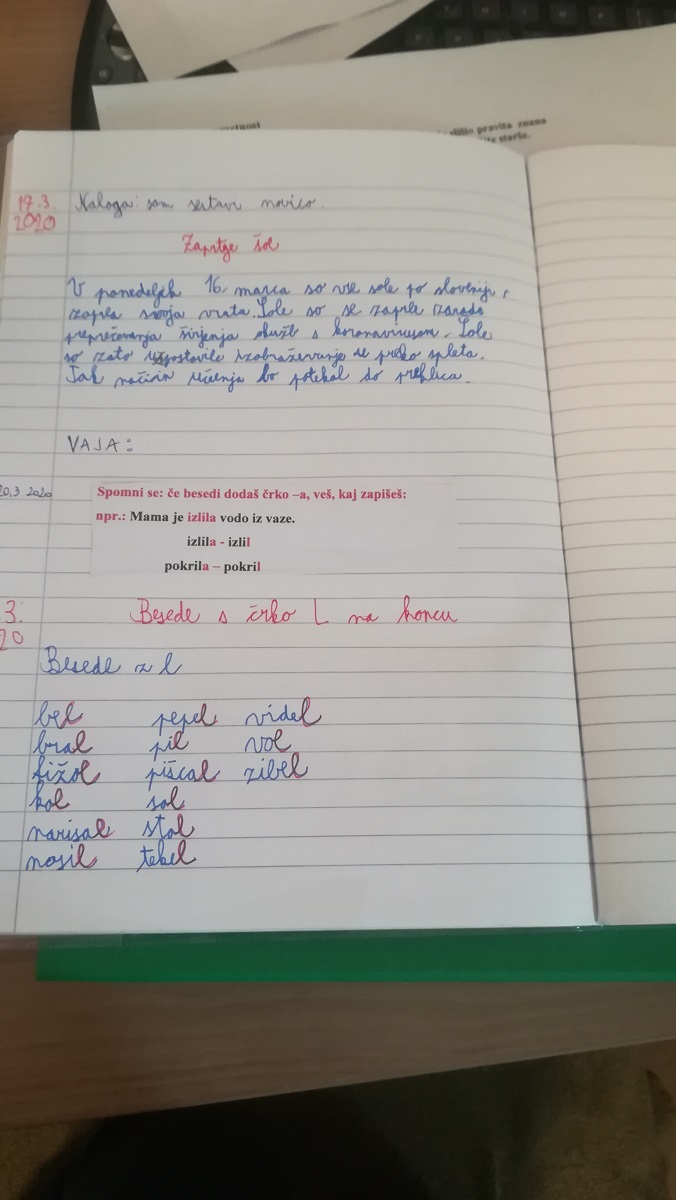 metnost
dišio pravita znana
starše.
17.3.
2020
Naloga: sam sestavi novico.
Zaprtje šol
V ponedeljek 16. marca so vse šole po sloveniji
zaprla svoja vrata. Šole so se zaprle zaradi
preprečevanja širjenja okužb s koronavirusom. Šole
so zato uzpostavile izobraževanje preko spleta.
Tak način učenja bo potekal do preklica.
VAJA:
20.3 2020
Spomni se: če besedi dodaš črko –a, veš, kaj zapišeš:
npr.: Mama je izlila vodo iz vaze.
izlila - izlil
pokrila – pokril
3.
20
Besede s črko L na koncu
Besede z l
bel pepel videl
bral pil vol
fižol piščal zibel
kol sol
narisal stol
nosil tekel